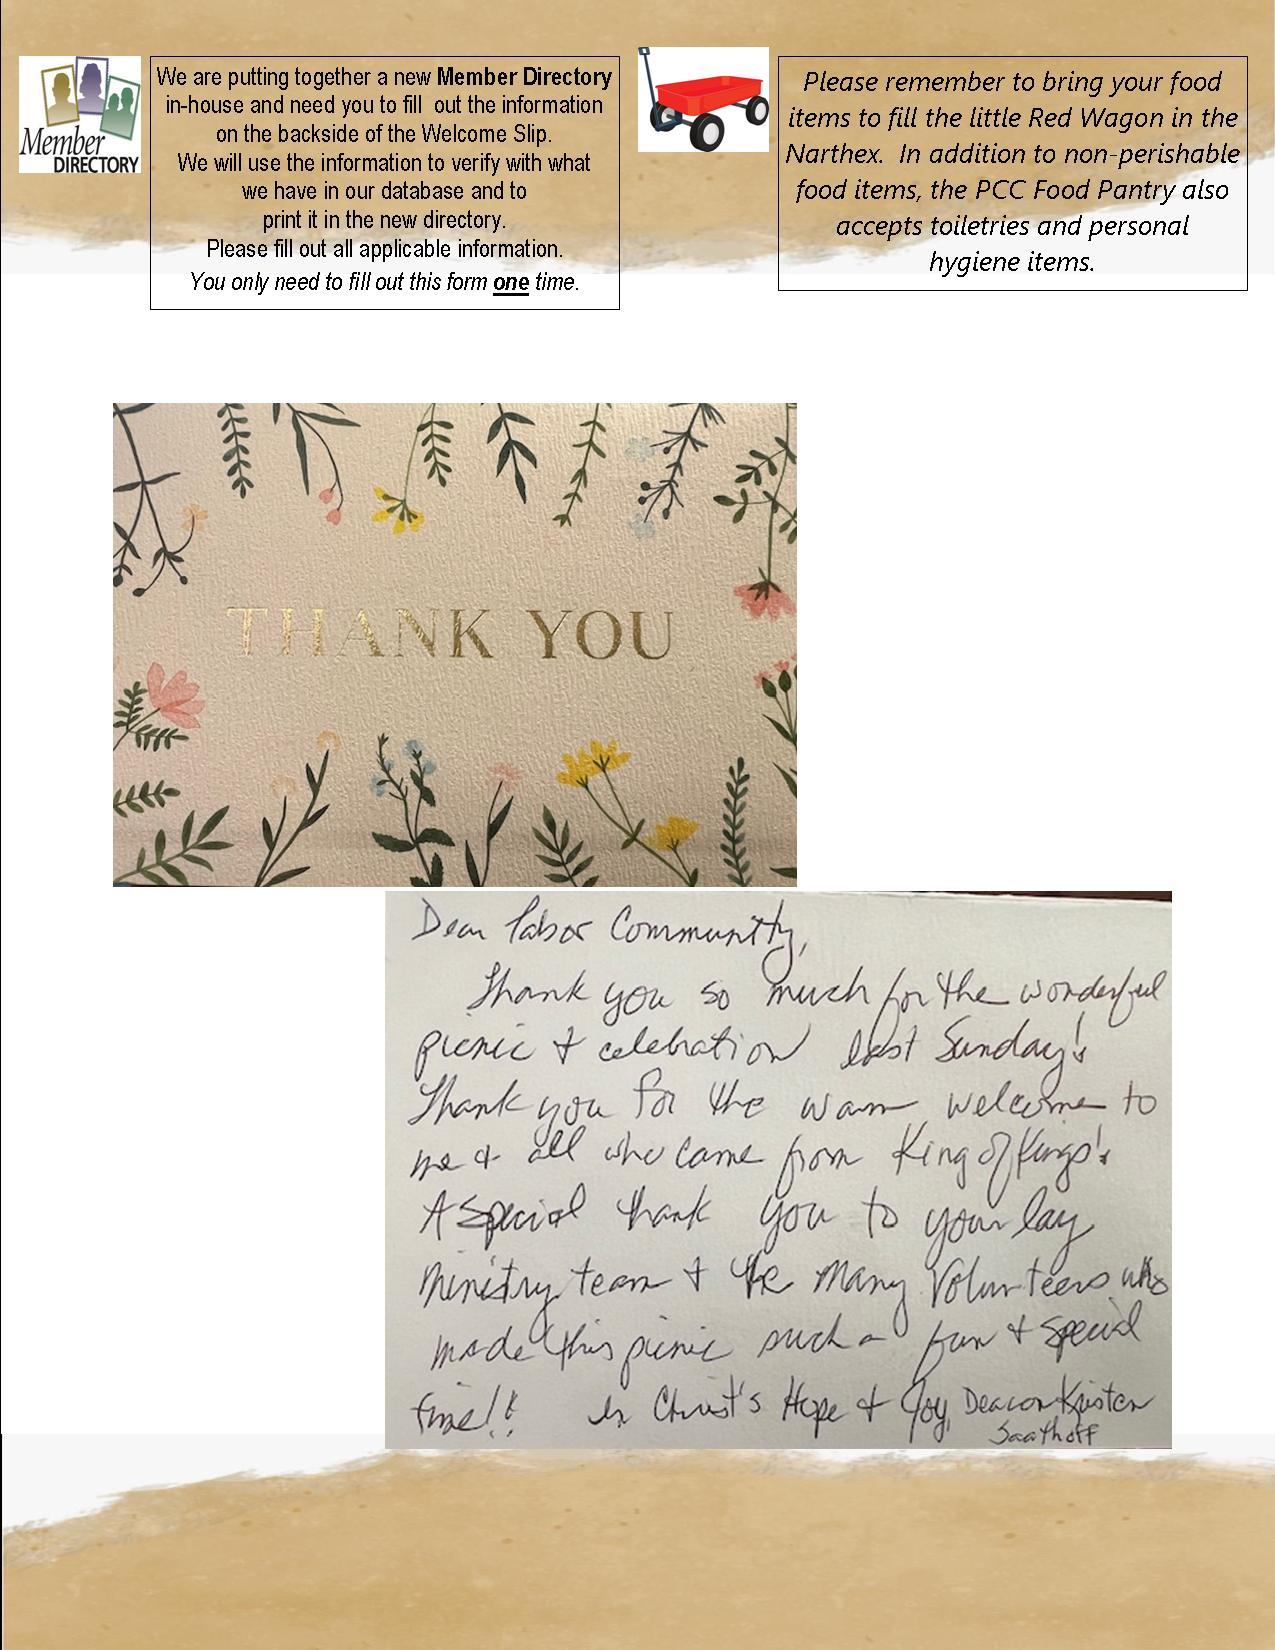 Member
DIRECTORY
We are putting together a new Member Directory
in-house and need you to fill out the information
on the backside of the Welcome Slip.
We will use the information to verify with what
we have in our database and to
print it in the new directory.
Please fill out all applicable information.
You only need to fill out this form one time.
Please remember to bring your food
items to fill the little Red Wagon in the
Narthex. In addition to non-perishable
food items, the PCC Food Pantry also
accepts toiletries and personal
hygiene items.
THANK YOU
Dear Tabor Community,
Thank you so much for the wonderful
picnic & celebration last Sunday!
Thank you for the warm welcome to
me & all who came from King of Kings!
A special thank you to your lay
ministry team & the many volunteers who
made this picnic such a fun & special
time!! In Christ's Hope & Joy, Deacon Kristen
Saathoff